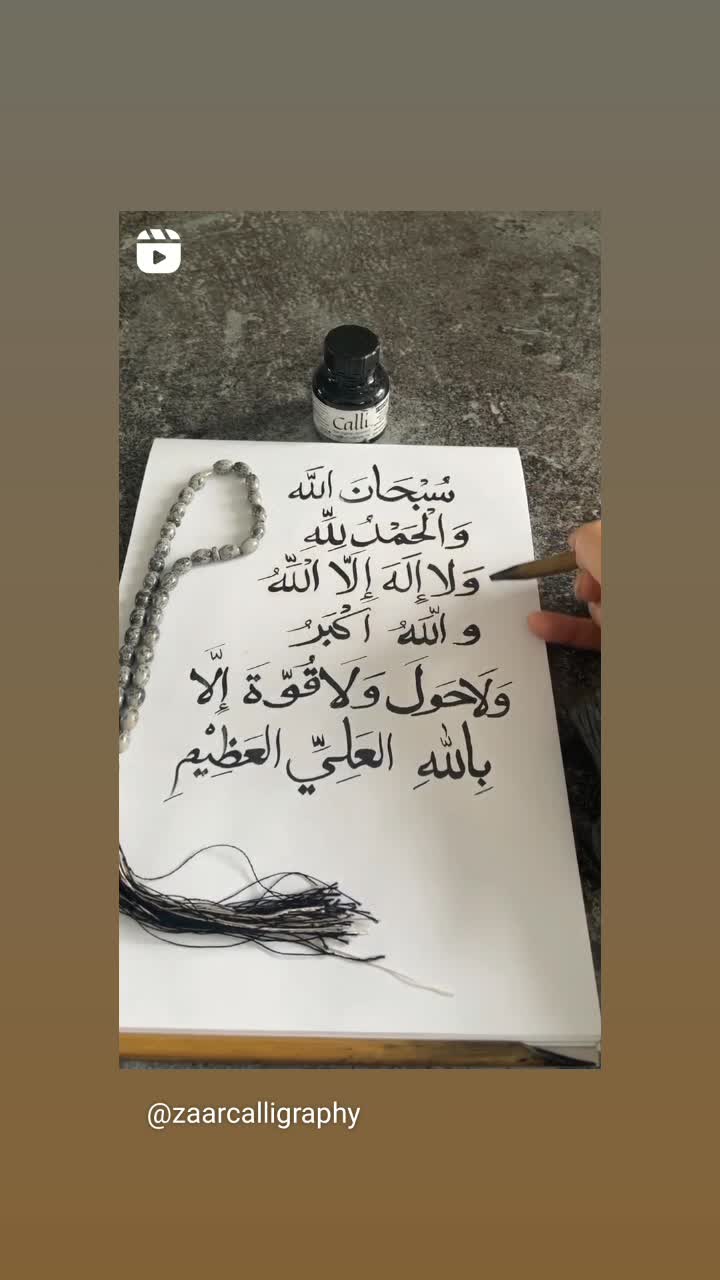 Calli
سُبْحَانَ اللّٰه
وَالْحَمْدُ لِلّٰهِ
وَلا إِلَهَ إِلَّا اللّٰهُ
و اللّٰهُ اَكْبَرُ
وَلَا حَولَ وَلَا قُوَّةَ إِلَّا
بِاللّٰهِ العَلِيِّ العَظِيْمِ
@zaarcalligraphy